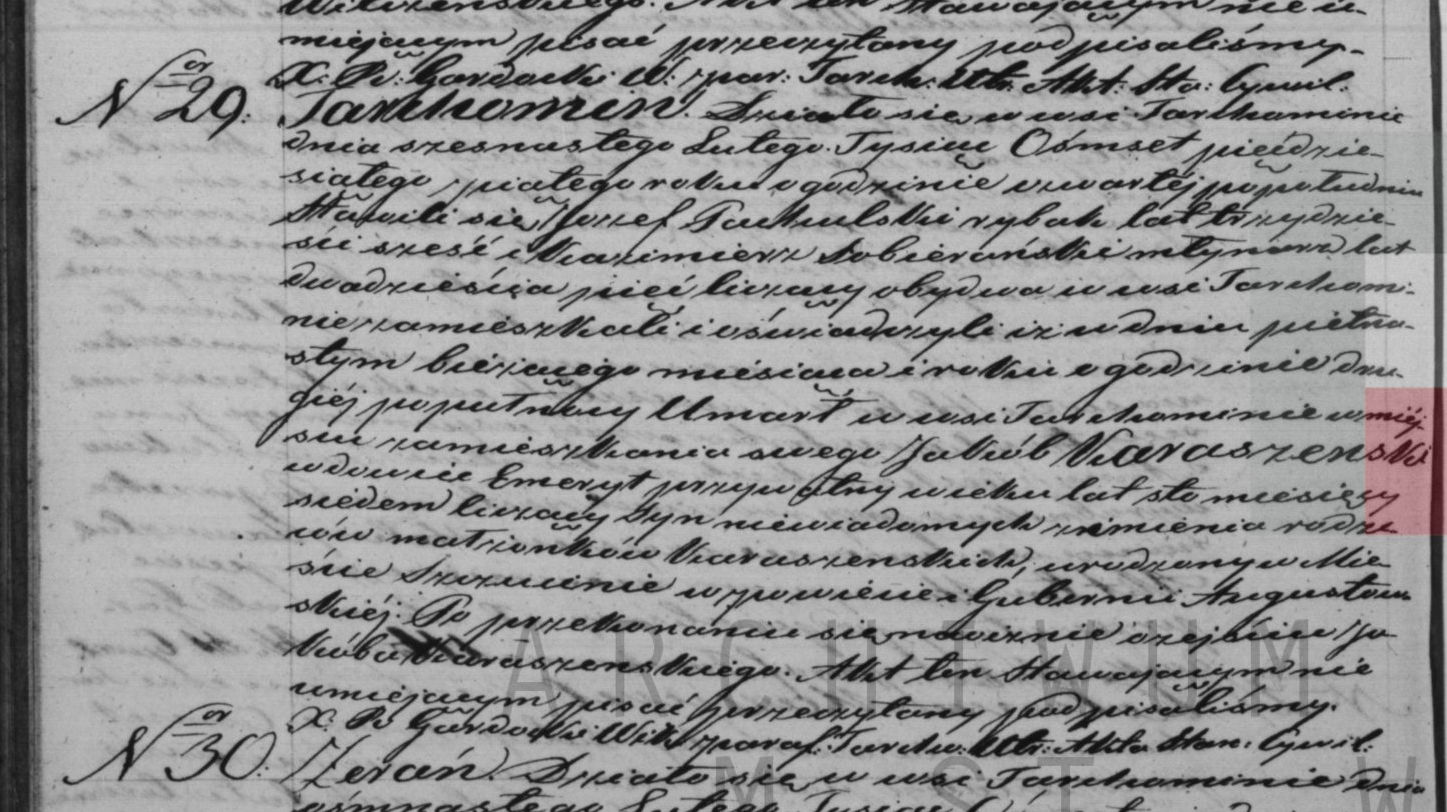 Wilczenskiego. Akt ten Stawającym nie u-
miejącym pisać przeczytany podpisaliśmy.-
X. R. Gardocki W. par: Tarch. Utr. Akt. Sta: Cywil.
Nor 29. Tarchomin. Działo się w wsi Tarchominie
dnia szesnastego Lutego. Tysiąc Ośmset pięćdzie-
siątego piątego roku o godzinie czwartéj popołudniu
Stawili się, Józef Pachulski rybak lat trzydzie-
ści sześć i Kazimierz Sobierański młynarz lat
dwadzieścia pięć liczący obydwa w wsi Tarchom-
nie zamieszkali i oświadczyli iż w dniu piętna-
stym bieżącego miesiąca i roku o godzinie dru-
giéj popułnocy Umarł w wsi Tarchominie w miéj-
scu zamieszkania swego Jakób Karaszenski
wdowiec Emeryt przywatny wieku lat sto miesięcy
siedem liczący Syn niewiadomych z imienia rodzi-
ców małżonków Karaszenskich, urodzony w Mie-
ście Szczucinie w powiecie i Gubernii Augustow-
skiéj. Po przekonaniu się naocznie o zejściu Ja-
kóba Karaszenskiego. Akt ten Stawającym nie
umiejącym pisać przeczytany podpisaliśmy.
X. R. Gardocki Wik. paraf. Tarcho. Utr. Akta Stan. Cywil.
Nor 30. Zerań. Działo się w wsi Tarchominie dnia
ośmnastego Lutego Tysiąc
ARCHIWUM
M ST W